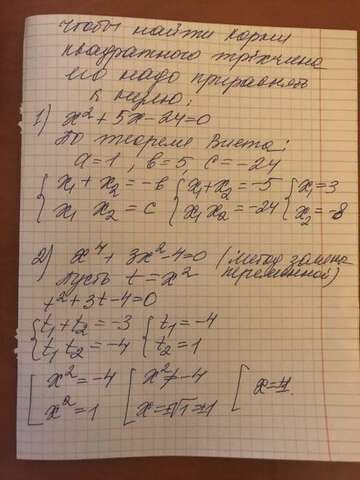 Чтобы найти корни
квадратного трёхчлена
его надо приравнять
к нулю:
1) x² + 5x - 24 = 0
По теореме Виета:
a = 1, b = 5, c = -24
{ x₁ + x₂ = -b { x₁ + x₂ = -5 { x₁ = 3
{ x₁ x₂ = c { x₁ x₂ = -24 { x₂ = -8
2) x⁴ + 3x² - 4 = 0 (метод замены
Пусть t = x² переменной)
t² + 3t - 4 = 0
{ t₁ + t₂ = -3 { t₁ = -4
{ t₁ t₂ = -4 { t₂ = 1
[ x² = -4 [ x² ≠ -4 [ x = ±1
[ x² = 1 [ x = ±√1 = ±1